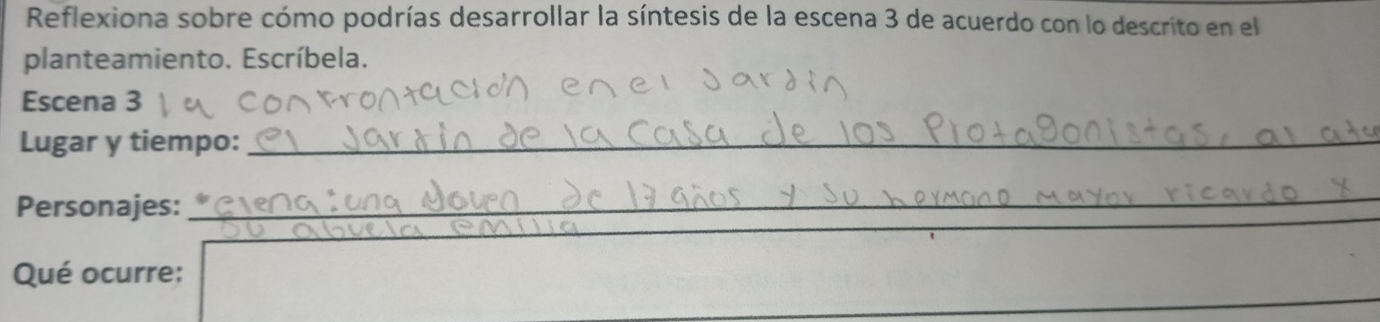 Reflexiona sobre cómo podrías desarrollar la síntesis de la escena 3 de acuerdo con lo descrito en el
planteamiento. Escríbela.
Escena 3 la confrontación en el Jardín
Lugar y tiempo: el Jardín de la casa de los Protagonistas, al
Personajes: *elena: una Joven de 17 años y su hermano mayor ricardo y
su abuela emilia
Qué ocurre: